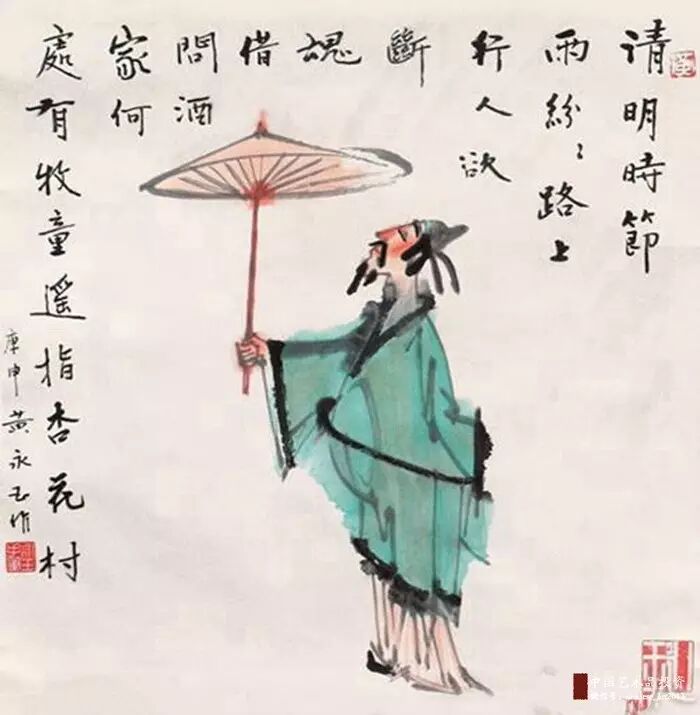 请明時節
雨紛〻路上
行人欲
斷
魂
借
問酒
家何
處有牧童遥指杏花村
庚申黄永玉作
中国艺术品投资